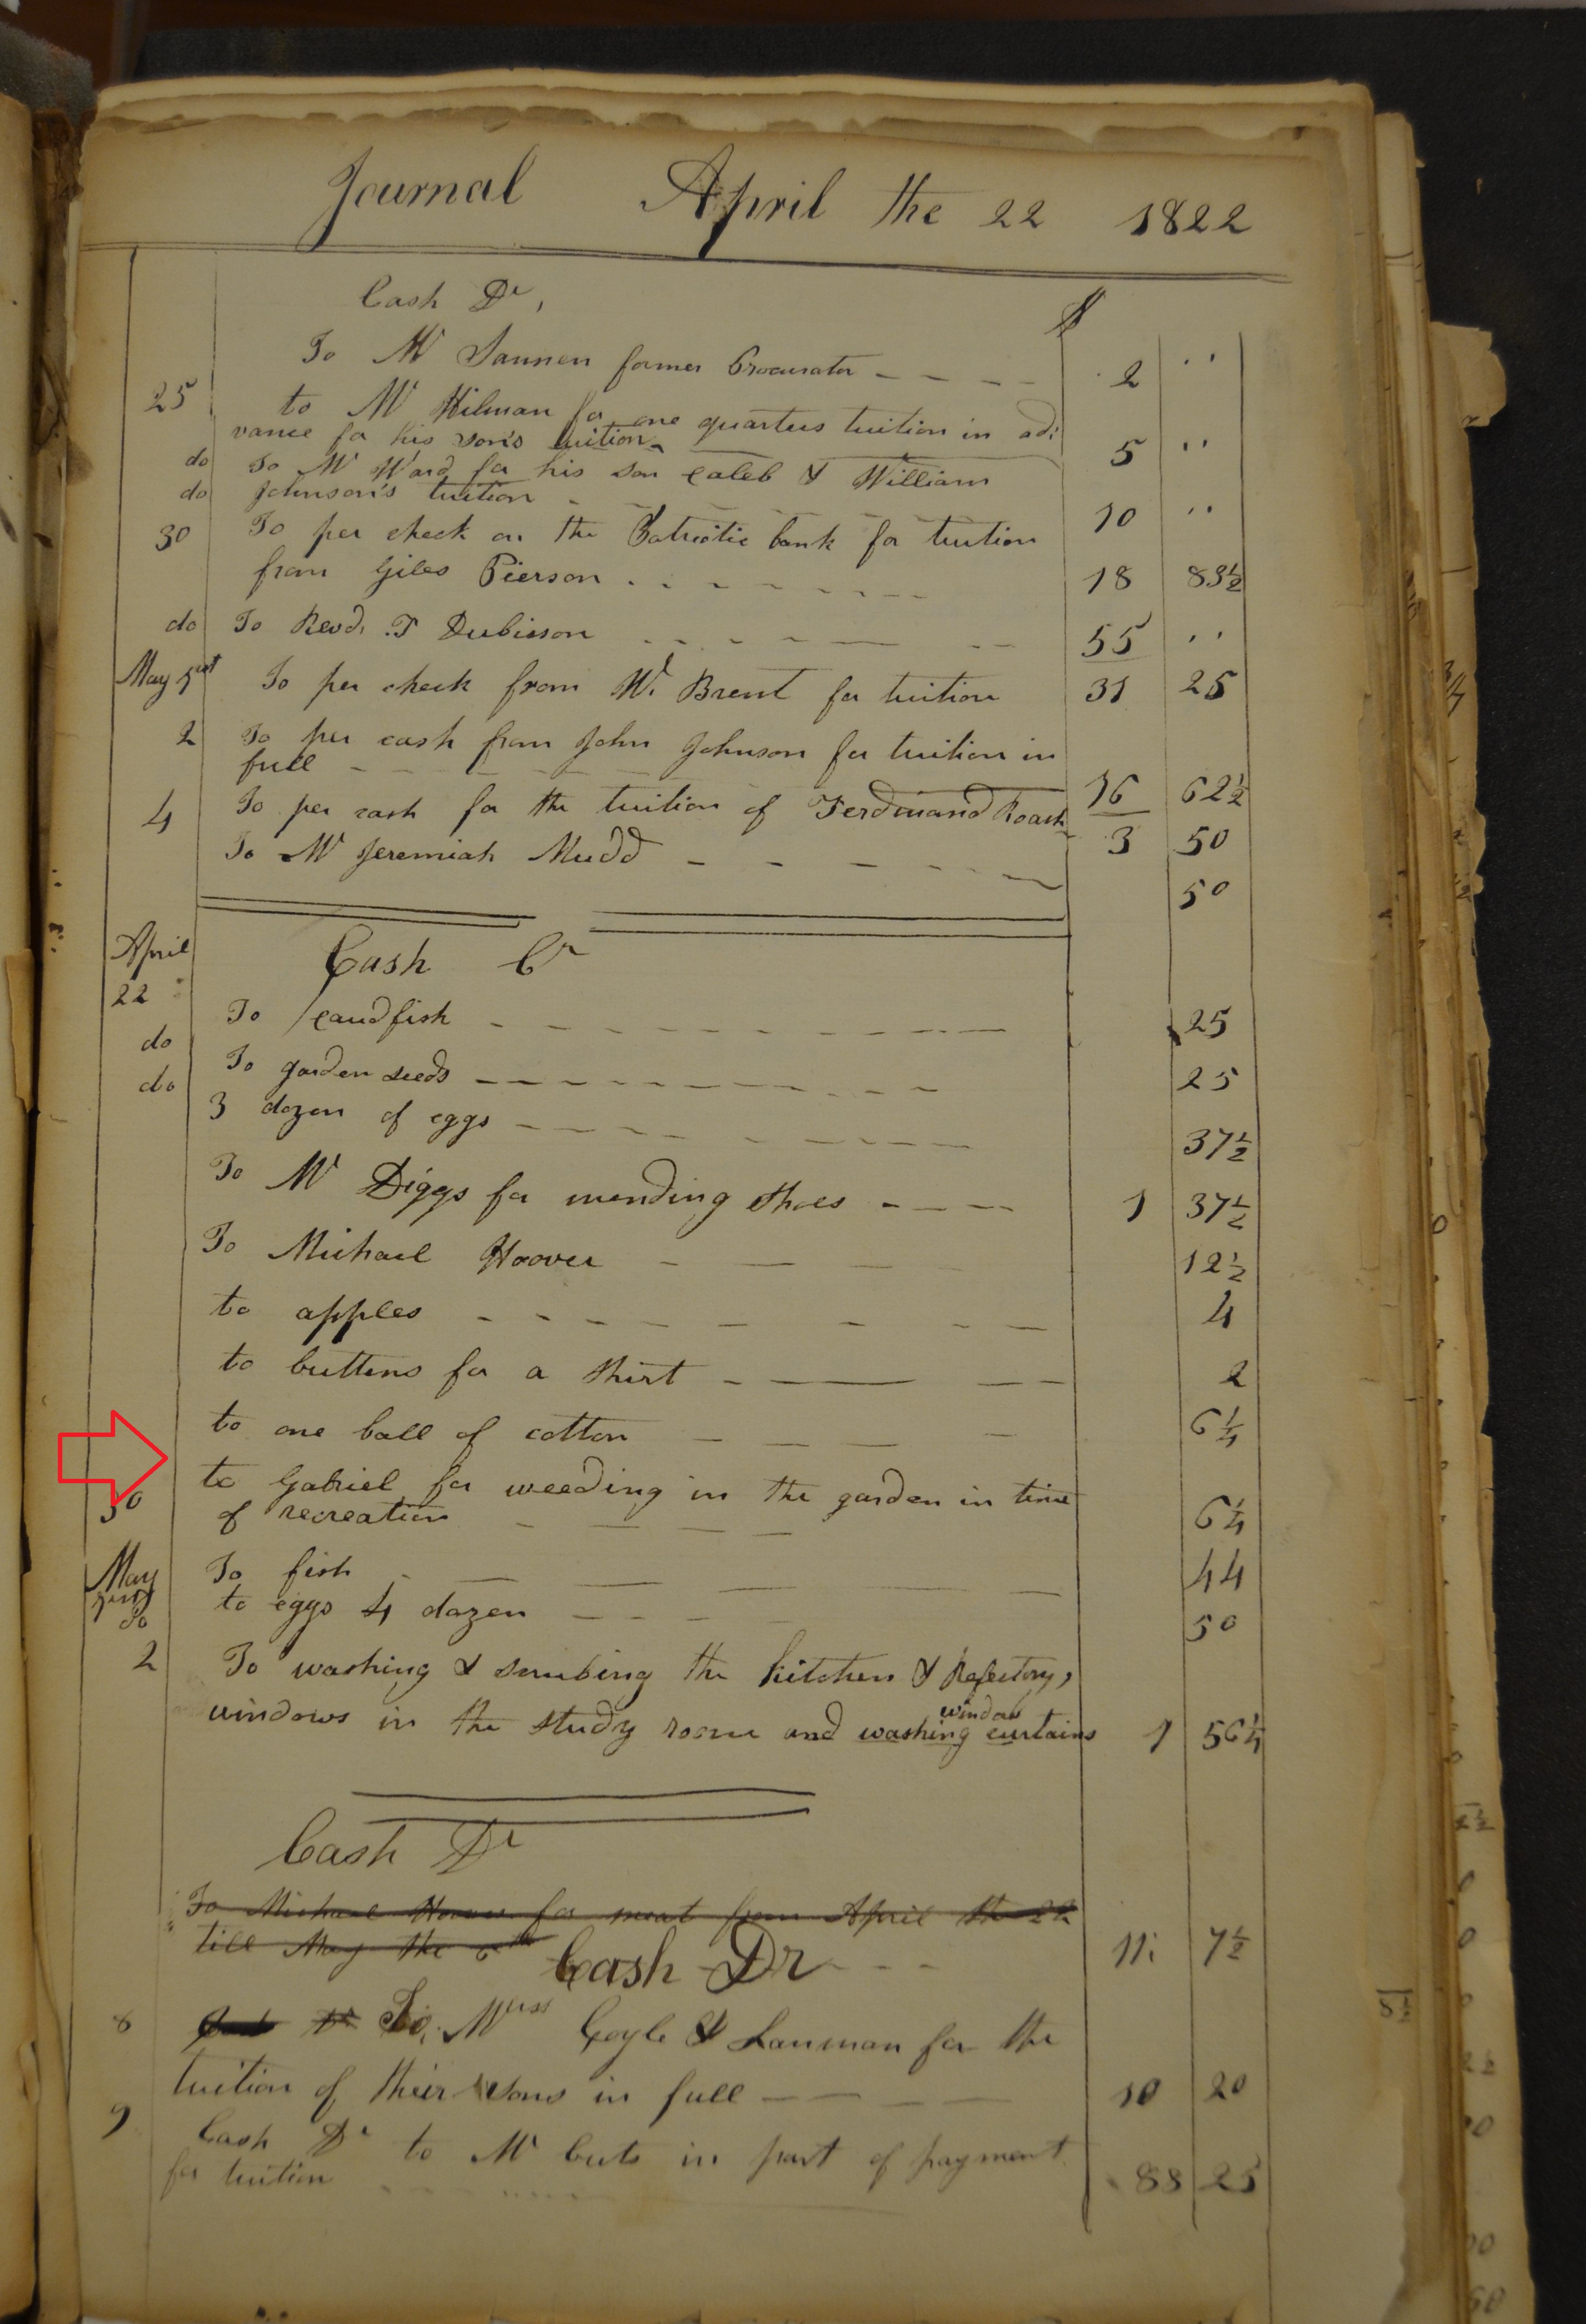 Journal April the 22 1822
Cash Dr,
$
To Mr Sannen former Procurator 2 ..
25 to Mr Hilman for one quarters tuition in ad:
vance for his son's tuition 5 ..
do To Mr Ward for his son Caleb & William
do Johnson's tuition 10 ..
30 To per check on the Patriotic bank for tuition
from Giles Pierson 18 83½
do To Revd. Dubisson 55 ..
May 1st To per check from Mr Brent for tuition 31 25
2 To per cash from John Johnson for tuition in
full 16 62½
4 To per cash for the tuition of Ferdinand Roach 3 50
To Mr Jeremiah Mudd 50
April Cash Cr
22 To fish 25
do To garden seeds 25
do 3 dozen of eggs 37½
To Mr Diggs for mending shoes 1 37½
To Michael Hoover 12½
to apples 4
to buttons for a shirt 2
to one ball of cotton 6¼
to Gabriel for weeding in the garden in time
30 of recreation 6¼
May To fish 44
do to eggs 4 dozen 50
2 To washing & scrubing the kitchen & Refectory,
window
windows in the study room and washing curtains 1 56¼
Cash Dr
To Michael Hoover for meat from April the 22
till May the 6th 11. 7½
Cash Dr
8 To Messs Coyle & Lanman for the
tuition of their sons in full 10 20
9 Cash Dr to Mr Cuts in part of payment
for tuition 88 25